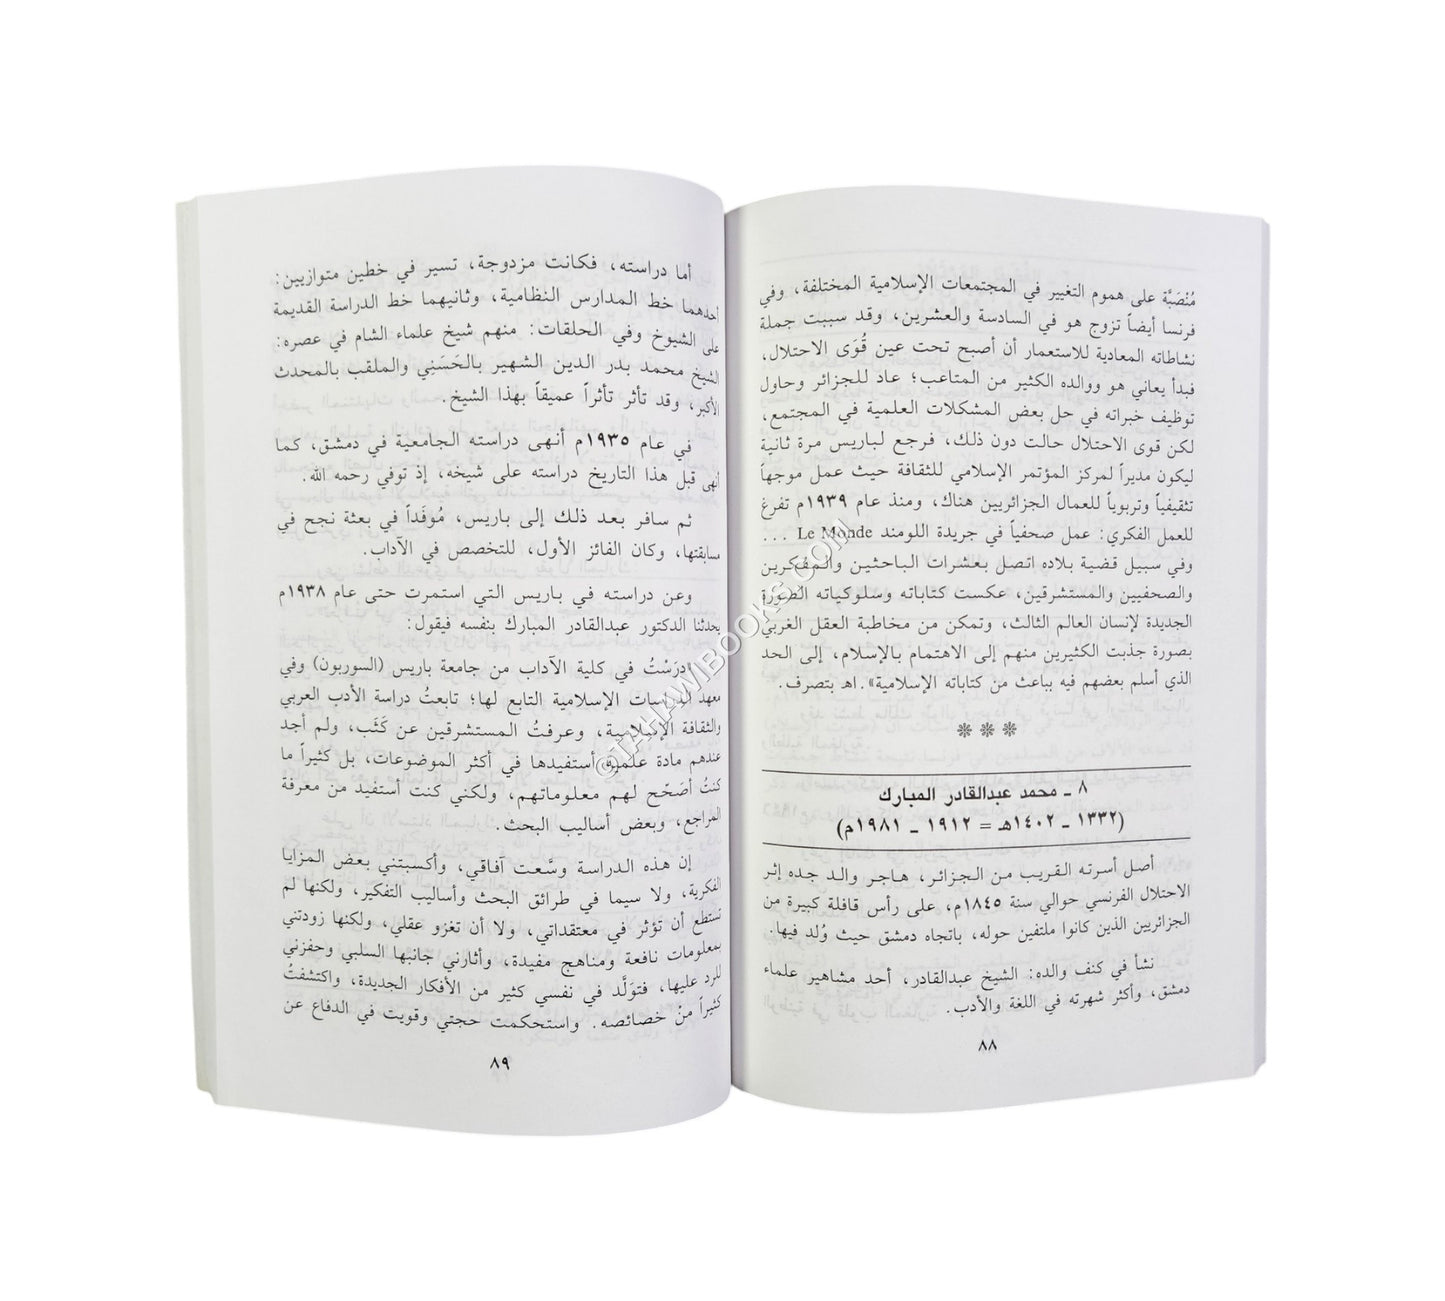 مُنْصَبَّة على هموم التغيير في المجتمعات الإسلامية المختلفة، وفي
فرنسا أيضاً تزوج هو في السادسة والعشرين، وقد سببت جملة
نشاطاته المعادية للاستعمار أن أصبح تحت عين قُوَى الاحتلال،
فبدأ يعاني هو ووالده الكثير من المتاعب؛ عاد للجزائر وحاول
توظيف خبراته في حل بعض المشكلات العلمية في المجتمع،
لكن قوى الاحتلال حالت دون ذلك، فرجع لباريس مرة ثانية
ليكون مديراً لمركز المؤتمر الإسلامي للثقافة حيث عمل موجهاً
تثقيفياً وتربوياً للعمال الجزائريين هناك، ومنذ عام ١٩٣٩م تفرغ
للعمل الفكري: عمل صحفياً في جريدة اللومند Le Monde ...
وفي سبيل قضية بلاده اتصل بعشرات الباحثين والمفكرين
والصحفيين والمستشرقين، عكست كتاباته وسلوكياته الصورة
الجديدة لإنسان العالم الثالث، وتمكن من مخاطبة العقل الغربي
بصورة جذبت الكثيرين منهم إلى الاهتمام بالإسلام، إلى الحد
الذي أسلم بعضهم فيه بباعث من كتاباته الإسلامية». اهـ بتصرف.
❊ ❊ ❊
٨ ـ محمد عبدالقادر المبارك
(١٣٣٢ ـ ١٤٠٢هـ = ١٩١٢ ـ ١٩٨١م)
أصل أسرته القريب من الجزائر، هاجر والد جده إثر
الاحتلال الفرنسي حوالي سنة ١٨٤٥م، على رأس قافلة كبيرة من
الجزائريين الذين كانوا ملتفين حوله، باتجاه دمشق حيث وُلد فيها.
نشأ في كنف والده: الشيخ عبدالقادر، أحد مشاهير علماء
دمشق، وأكثر شهرته في اللغة والأدب.
٨٨
أما دراسته، فكانت مزدوجة، تسير في خطين متوازيين:
أحدهما خط المدارس النظامية، وثانيهما خط الدراسة القديمة
على الشيوخ وفي الحلقات: منهم شيخ علماء الشام في عصره:
الشيخ محمد بدر الدين الشهير بالحَسَني والملقب بالمحدث
الأكبر، وقد تأثر تأثراً عميقاً بهذا الشيخ.
في عام ١٩٣٥م أنهى دراسته الجامعية في دمشق، كما
أنهى قبل هذا التاريخ دراسته على شيخه، إذ توفي رحمه الله.
ثم سافر بعد ذلك إلى باريس، مُوفَداً في بعثة نجح في
مسابقتها، وكان الفائز الأول، للتخصص في الآداب.
وعن دراسته في باريس التي استمرت حتى عام ١٩٣٨م
يحدثنا الدكتور عبدالقادر المبارك بنفسه فيقول:
«درَسْتُ في كلية الآداب من جامعة باريس (السوربون) وفي
معهد الدراسات الإسلامية التابع لها؛ تابعتُ دراسة الأدب العربي
والثقافة الإسلامية، وعرفتُ المستشرقين عن كَثَب، ولم أجد
عندهم مادة علمية أستفيدها في أكثر الموضوعات، بل كثيراً ما
كنتُ أصَحّح لهم معلوماتهم، ولكني كنت أستفيد من معرفة
المراجع، وبعض أساليب البحث.
إن هذه الدراسة وسَّعت آفاقي، وأكسبتني بعض المزايا
الفكرية، ولا سيما في طرائق البحث وأساليب التفكير، ولكنها لم
تستطع أن تؤثر في معتقداتي، ولا أن تغزو عقلي، ولكنها زودتني
بمعلومات نافعة ومناهج مفيدة، وأثارني جانبها السلبي وحفزني
للرد عليها، فتولَّد في نفسي كثير من الأفكار الجديدة، واكتشفتُ
كثيراً منْ خصائصه. واستحكمت حجتي وقويت في الدفاع عن
٨٩
©TAHAWIBOOKS.COM